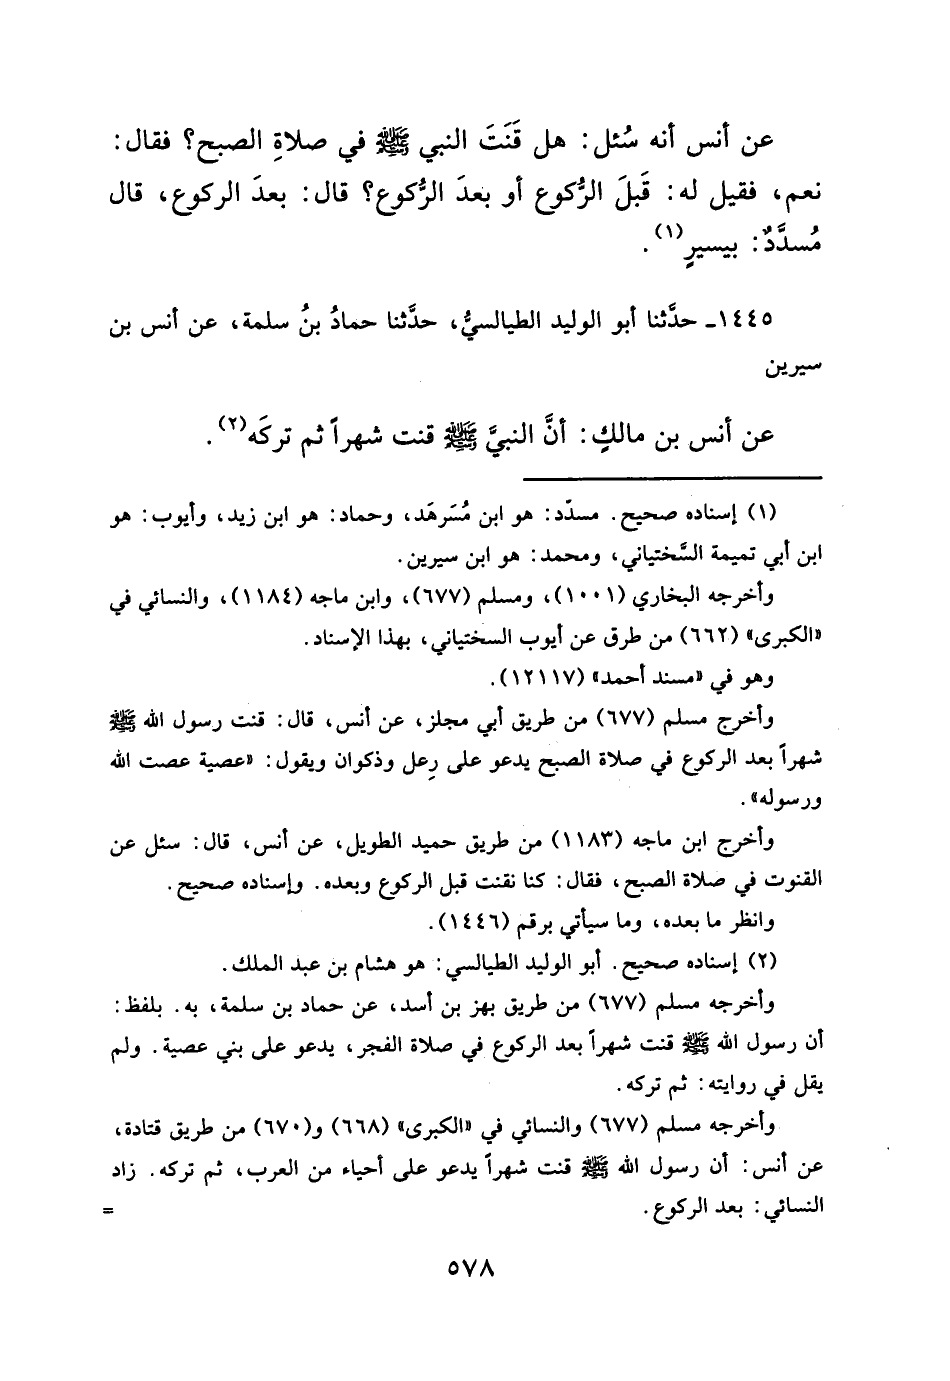 عن أنس أنه سُئل: هل قَنَتَ النبي ﷺ في صلاةِ الصبح؟ فقال:
نعم، فقيل له: قَبلَ الرُّكوع أو بعدَ الرُّكوع؟ قال: بعدَ الركوع، قال
مُسدَّدٌ: بيسيرٍ(١).
١٤٤٥ـ حدَّثنا أبو الوليد الطيالسيُّ، حدَّثنا حمادُ بنُ سلمة، عن أنس بن
سيرين
عن أنس بن مالكٍ: أنَّ النبيَّ ﷺ قنت شهراً ثم تركَه(٢).
(١) إسناده صحيح. مسدّد: هو ابن مُسَرهَد، وحماد: هو ابن زيد، وأيوب: هو
ابن أبي تميمة السَّختياني، ومحمد: هو ابن سيرين.
وأخرجه البخاري (١٠٠١)، ومسلم (٦٧٧)، وابن ماجه (١١٨٤)، والنسائي في
«الكبرى» (٦٦٢) من طرق عن أيوب السختياني، بهذا الإسناد.
وهو في «مسند أحمد» (١٢١١٧).
وأخرج مسلم (٦٧٧) من طريق أبي مجلز، عن أنس، قال: قنت رسول الله ﷺ
شهراً بعد الركوع في صلاة الصبح يدعو على رِعل وذكوان ويقول: «عصية عصت الله
ورسوله».
وأخرج ابن ماجه (١١٨٣) من طريق حميد الطويل، عن أنس، قال: سئل عن
القنوت في صلاة الصبح، فقال: كنا نقنت قبل الركوع وبعده. وإسناده صحيح.
وانظر ما بعده، وما سيأتي برقم (١٤٤٦).
(٢) إسناده صحيح. أبو الوليد الطيالسي: هو هشام بن عبد الملك.
وأخرجه مسلم (٦٧٧) من طريق بهز بن أسد، عن حماد بن سلمة، به. بلفظ:
أن رسول الله ﷺ قنت شهراً بعد الركوع في صلاة الفجر، يدعو على بني عصية. ولم
يقل في روايته: ثم تركه.
وأخرجه مسلم (٦٧٧) والنسائي في «الكبرى» (٦٦٨) و(٦٧٠) من طريق قتادة،
عن أنس: أن رسول الله ﷺ قنت شهراً يدعو على أحياء من العرب، ثم تركه. زاد
النسائي: بعد الركوع. =
٥٧٨